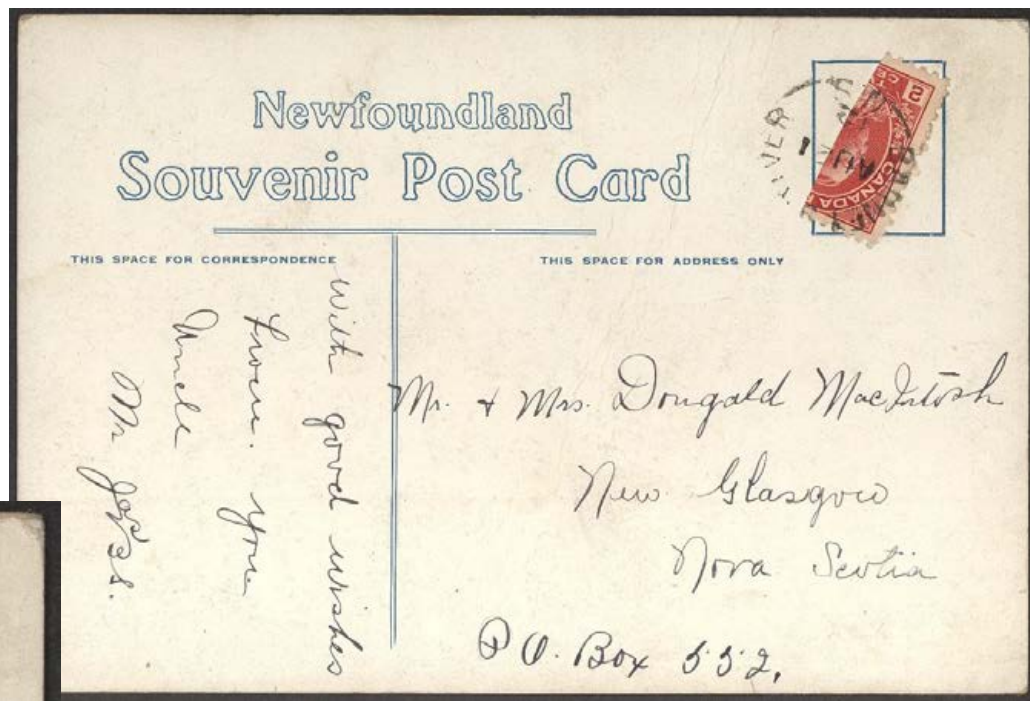 Newfoundland
Souvenir Post Card
THIS SPACE FOR CORRESPONDENCE
THIS SPACE FOR ADDRESS ONLY
with good wishes
from. your
Uncle
Mr
Mr. & Mrs. Dougald MacIntosh
New Glasgow
Nova Scotia
P.O. Box 552.
2
CE
CANADA
RIVER
AU